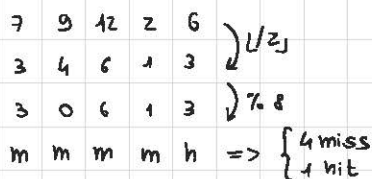 7 9 12 2 6
⌊/2⌋
3 4 6 1 3
% 8
3 0 6 1 3
m m m m h => { 4 miss
1 hit